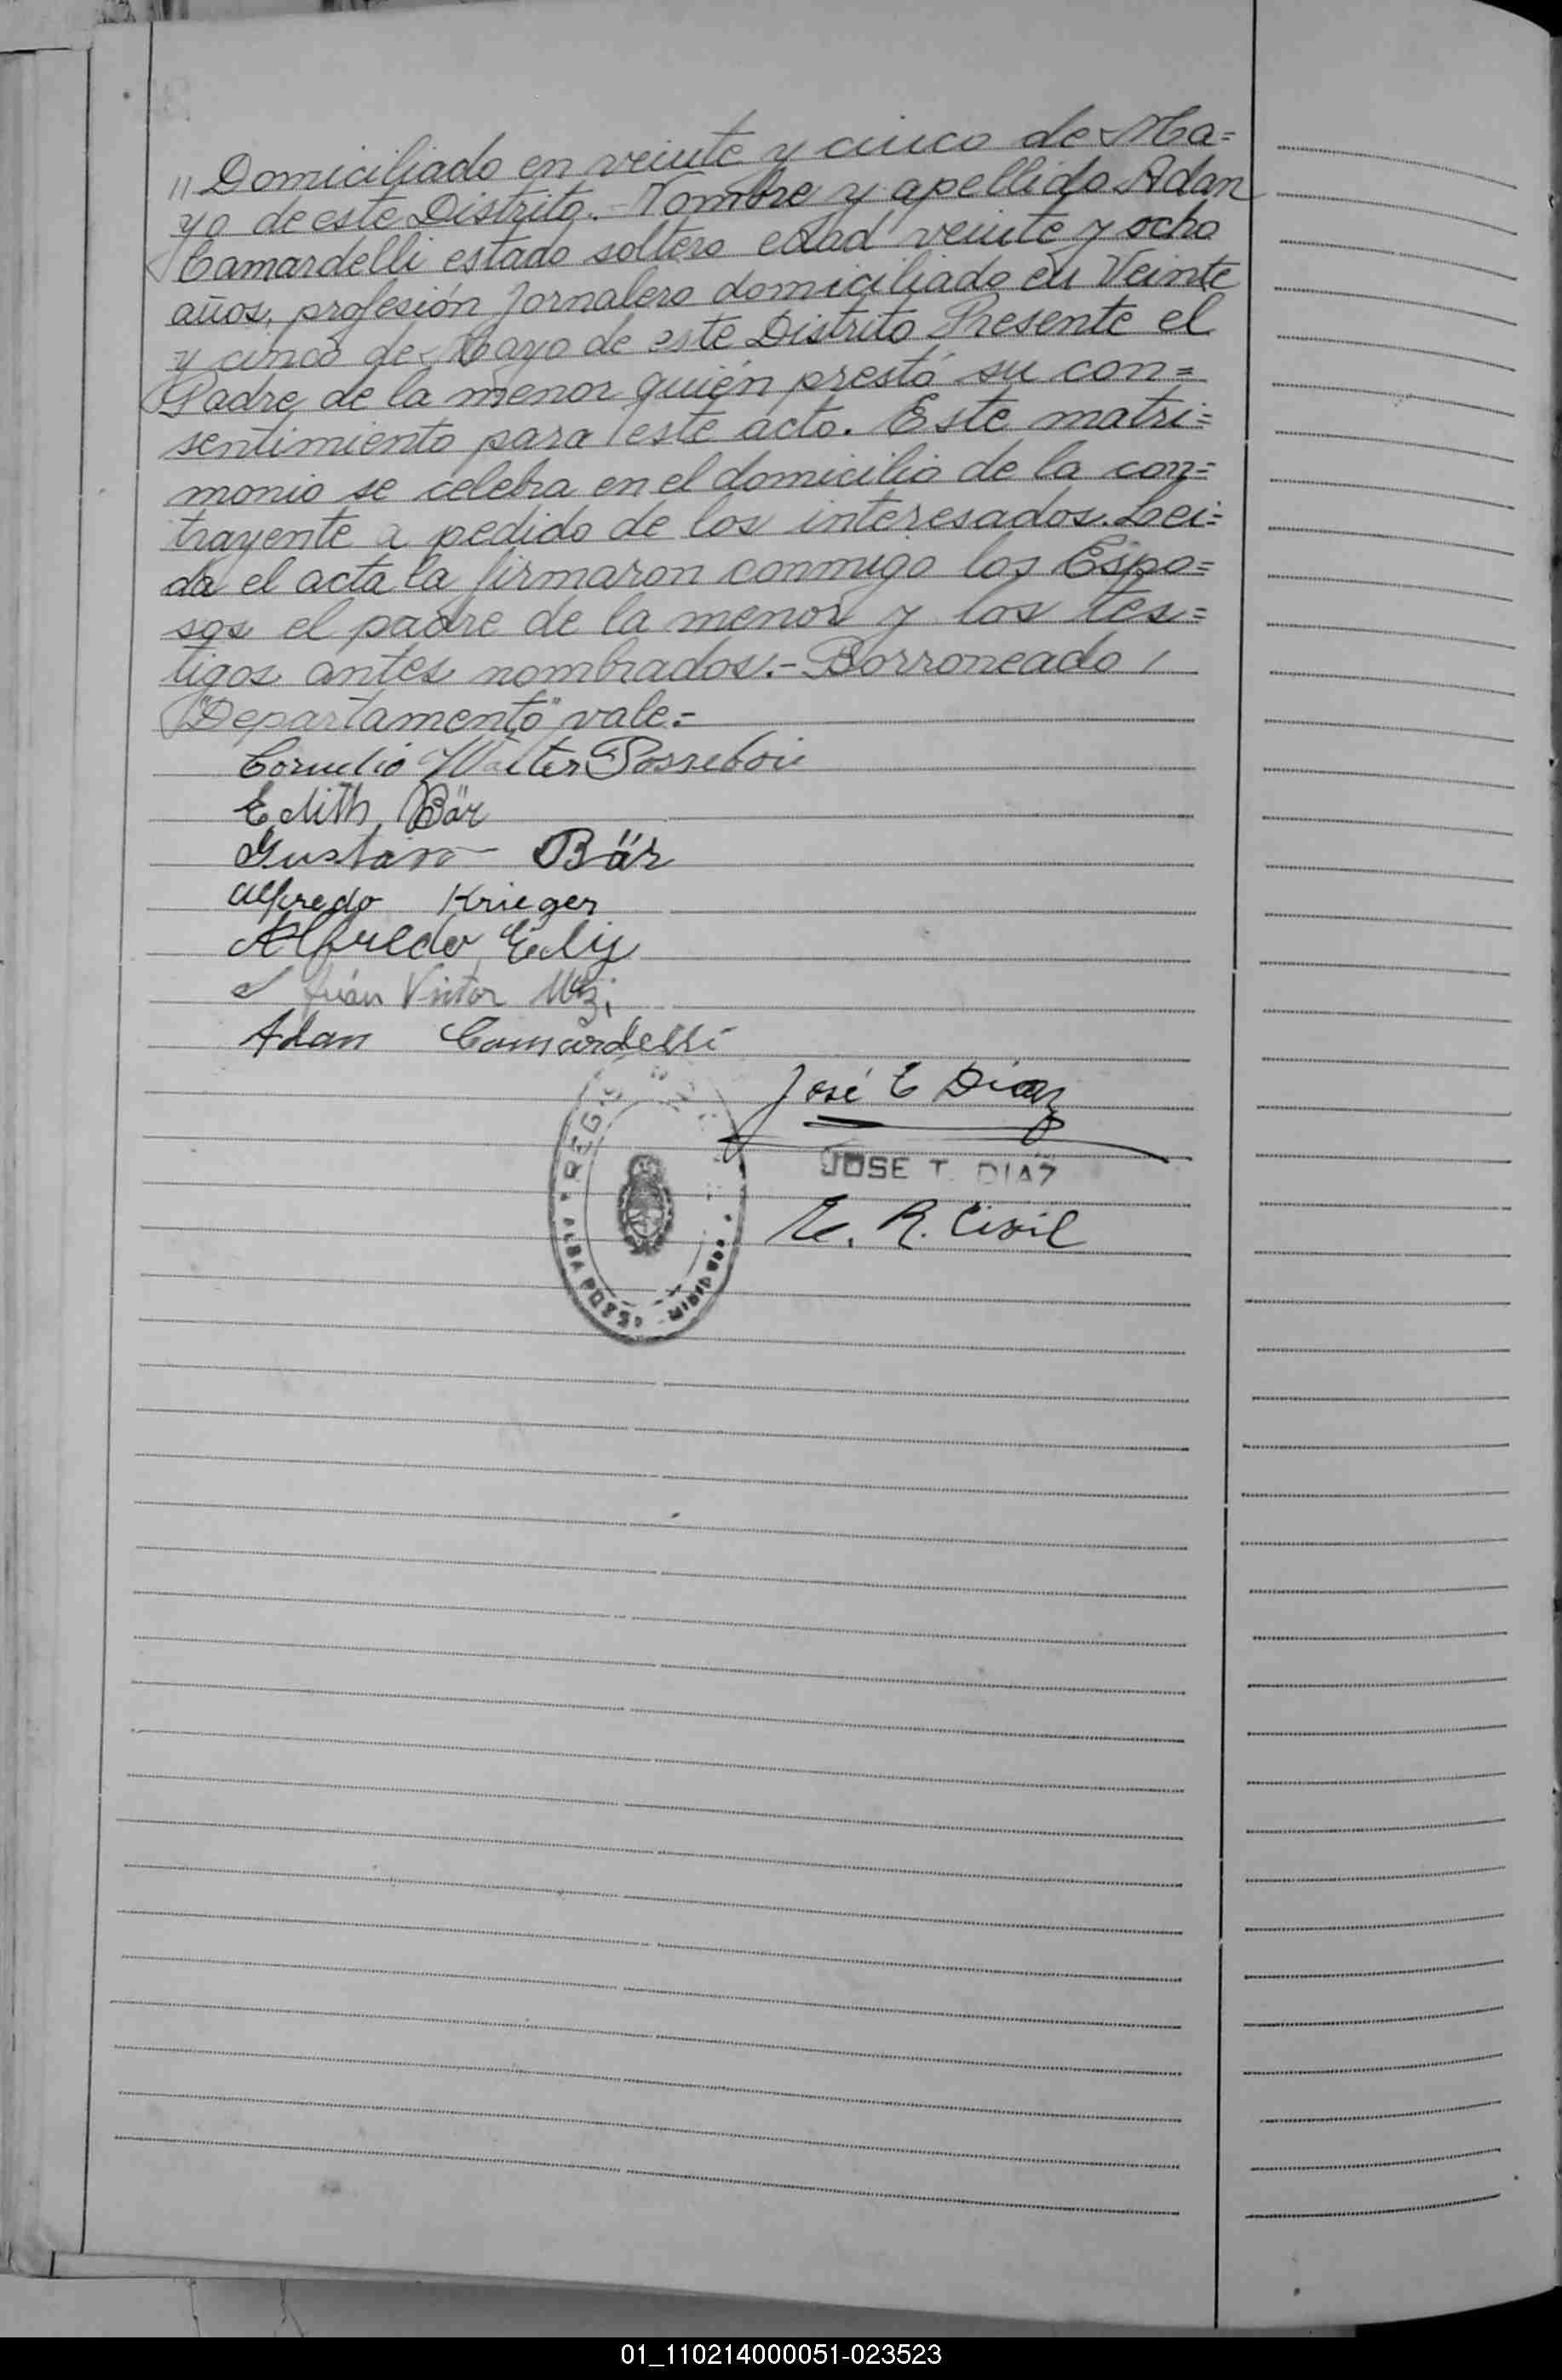 " Domiciliado en veinte y cinco de Ma=
yo de este Distrito.- Nombre y apellido Adan
Camardelli estado soltero edad veinte y ocho
años, profesión Jornalero domiciliado en Veinte
y cinco de Mayo de este Distrito Presente el
Padre de la menor quién prestó su con=
sentimiento para este acto. Este matri=
monio se celebra en el domicilio de la con=
trayente a pedido de los interesados. Lei=
da el acta la firmaron conmigo los Espo=
sos el padre de la menor y los tes=
tigos antes nombrados.- Borroneado /
"Departamento" vale.=
Cornelio Walter
Edith Bär
Gustavo Bär
Alfredo Krieger
Alfredo
Juan Victor
Adan Camardelli
José E Díaz
JOSE T. DIAZ
R. Civil
REGIS
ALBA POSSE
01_110214000051-023523